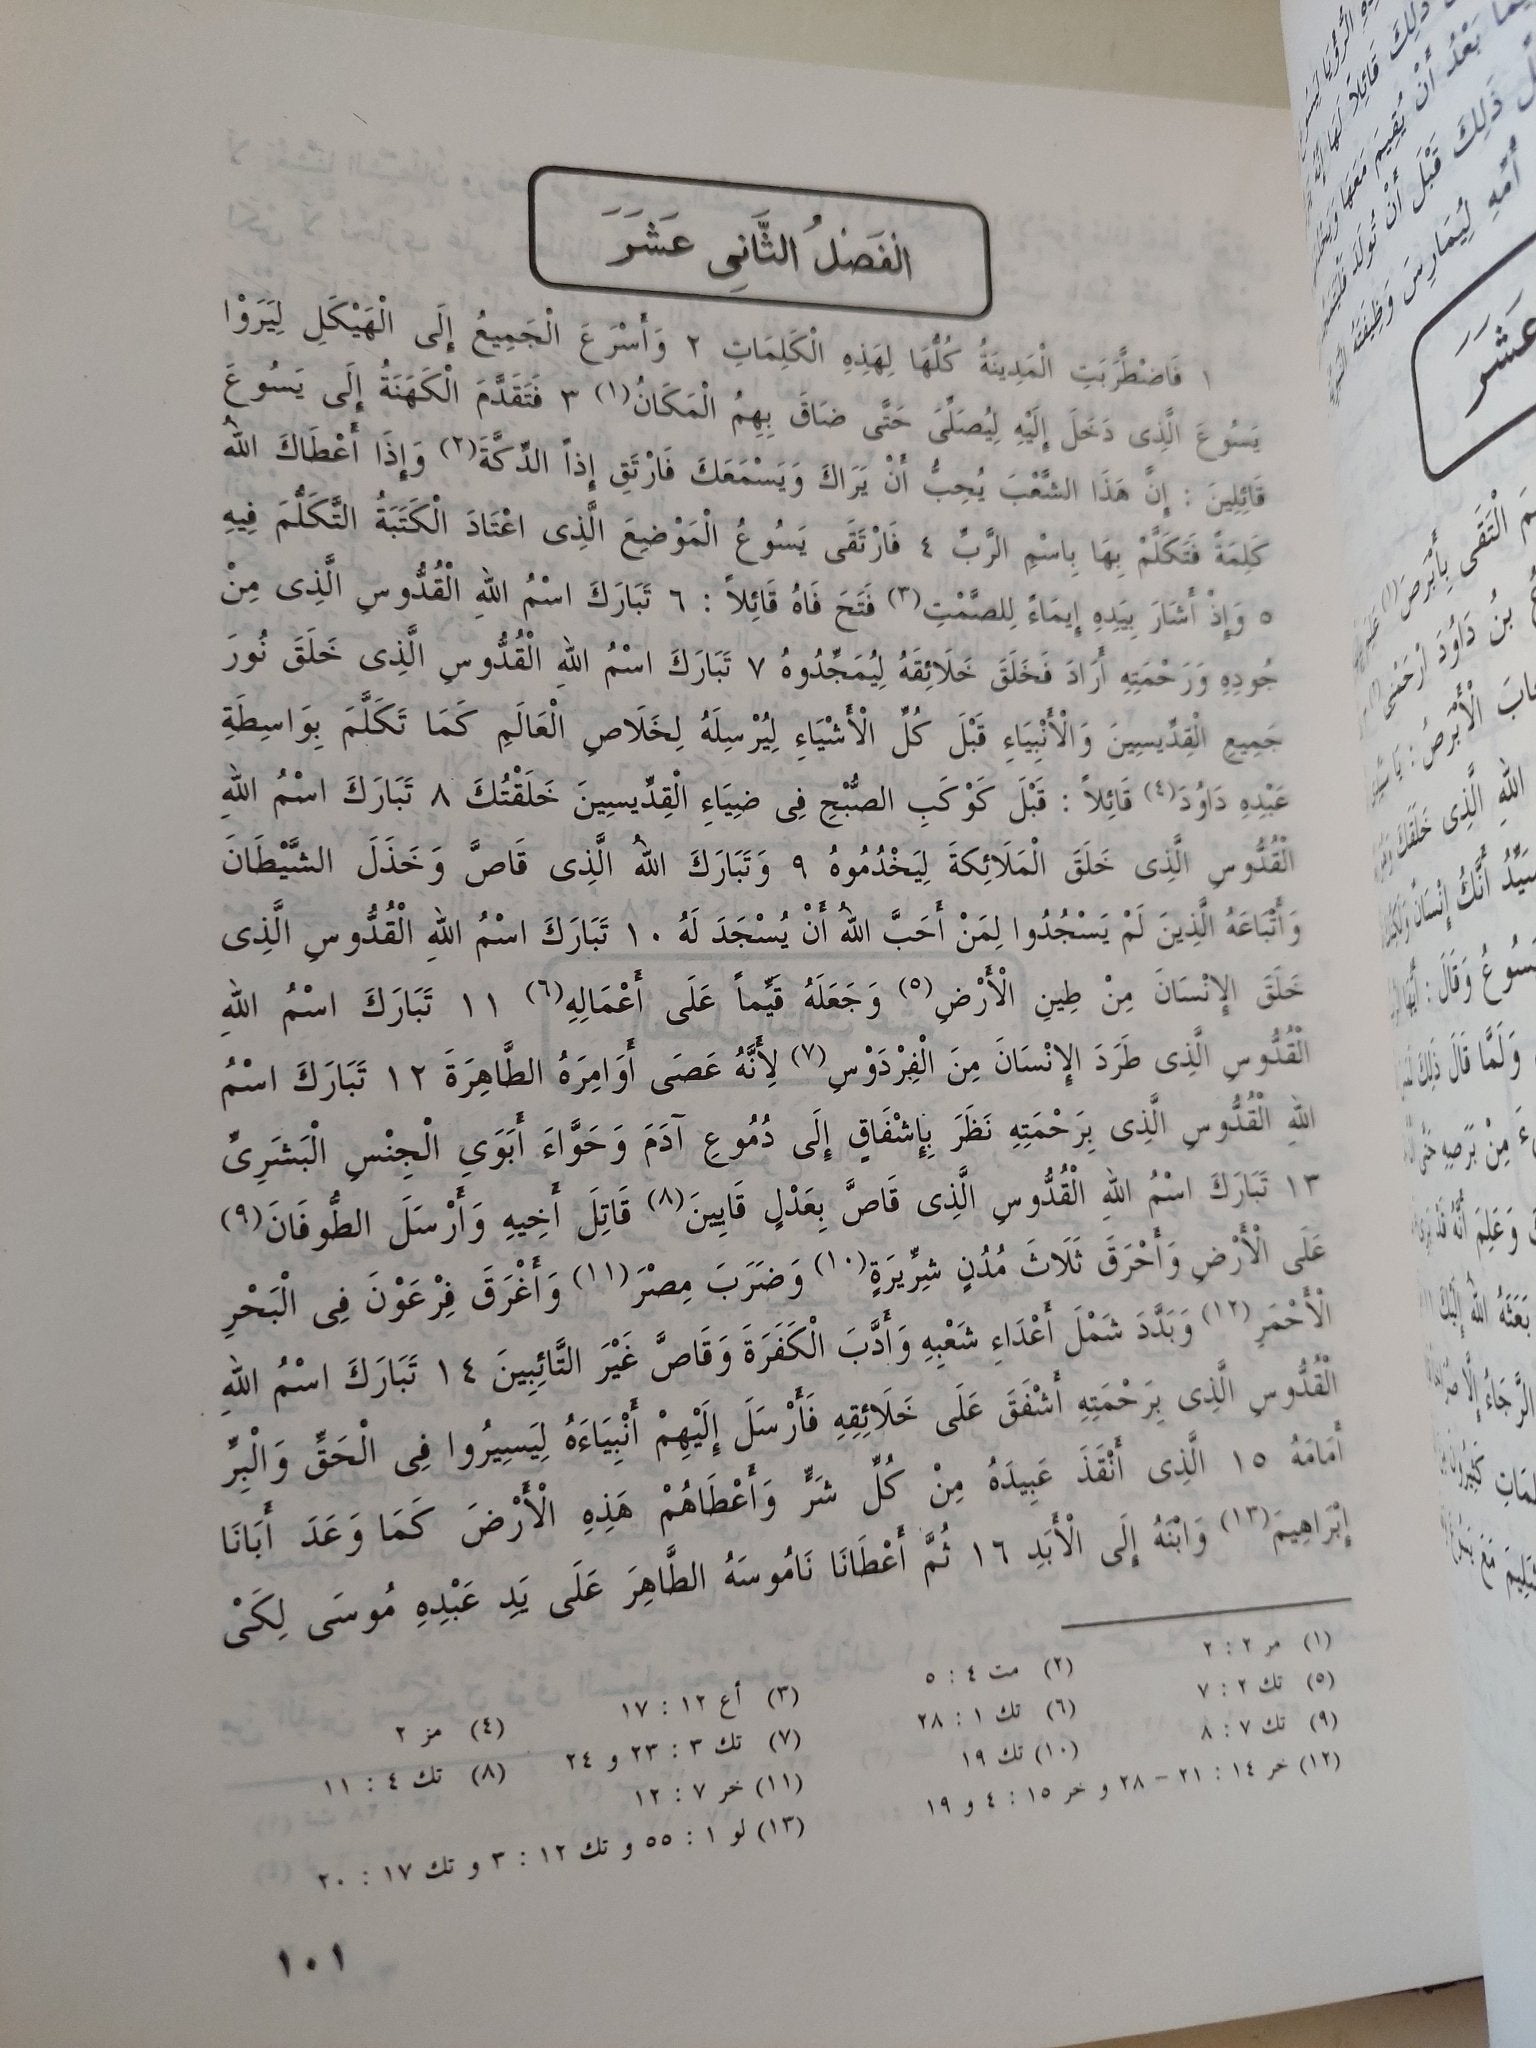 الْفَصْلُ الثَّانِى عَشَرَ
١ فَاضْطَّرَبَتِ الْمَدِينَةُ كُلُّهَا لِهَذِهِ الْكَلِمَاتِ ٢ وَأَسْرَعَ الْجَمِيعُ إِلَى الْهَيْكَلِ لِيَرَوْا
يَسُوعَ الَّذِى دَخَلَ إِلَيْهِ لِيُصَلِّىَ حَتَّى ضَاقَ بِهِمُ الْمَكَانُ(١) ٣ فَتَقَدَّمَ الْكَهَنَةُ إِلَى يَسُوعَ
قَائِلِينَ : إِنَّ هَذَا الشَّعْبَ يُحِبُّ أَنْ يَرَاكَ وَيَسْمَعَكَ فَارْتَقِ إِذاً الدِّكَّةَ(٢) وَإِذَا أَعْطَاكَ اللهُ
كَلِمَةً فَتَكَلَّمْ بِهَا بِاسْمِ الرَّبِّ ٤ فَارْتَقَى يَسُوعُ الْمَوْضِعَ الَّذِى اعْتَادَ الْكَتَبَةُ التَّكَلُّمَ فِيهِ
٥ وَإِذْ أَشَارَ بِيَدِهِ إِيمَاءً لِلصَّمْتِ(٣) فَتَحَ فَاهُ قَائِلاً : ٦ تَبَارَكَ اسْمُ اللهِ الْقُدُّوسِ الَّذِى مِنْ
جُودِهِ وَرَحْمَتِهِ أَرَادَ فَخَلَقَ خَلَائِقَهُ لِيُمَجِّدُوهُ ٧ تَبَارَكَ اسْمُ اللهِ الْقُدُّوسِ الَّذِى خَلَقَ نُورَ
جَمِيعِ الْقِدِّيسِينَ وَالْأَنْبِيَاءِ قَبْلَ كُلِّ الْأَشْيَاءِ لِيُرْسِلَهُ لِخَلَاصِ الْعَالَمِ كَمَا تَكَلَّمَ بِوَاسِطَةِ
عَبْدِهِ دَاوُدَ(٤) قَائِلاً : قَبْلَ كَوْكَبِ الصُّبْحِ فِى ضِيَاءِ الْقِدِّيسِينَ خَلَقْتُكَ ٨ تَبَارَكَ اسْمُ اللهِ
الْقُدُّوسِ الَّذِى خَلَقَ الْمَلَائِكَةَ لِيَخْدُمُوهُ ٩ وَتَبَارَكَ اللهُ الَّذِى قَاصَّ وَخَذَلَ الشَّيْطَانَ
وَأَتْبَاعَهُ الَّذِينَ لَمْ يَسْجُدُوا لِمَنْ أَحَبَّ اللهُ أَنْ يُسْجَدَ لَهُ ١٠ تَبَارَكَ اسْمُ اللهِ الْقُدُّوسِ الَّذِى
خَلَقَ الإِنْسَانَ مِنْ طِينِ الْأَرْضِ(٥) وَجَعَلَهُ قَيِّماً عَلَى أَعْمَالِهِ(٦) ١١ تَبَارَكَ اسْمُ اللهِ
الْقُدُّوسِ الَّذِى طَرَدَ الإِنْسَانَ مِنَ الْفِرْدَوْسِ(٧) لِأَنَّهُ عَصَى أَوَامِرَهُ الطَّاهِرَةَ ١٢ تَبَارَكَ اسْمُ
اللهِ الْقُدُّوسِ الَّذِى بِرَحْمَتِهِ نَظَرَ بِإِشْفَاقٍ إِلَى دُمُوعِ آدَمَ وَحَوَّاءَ أَبَوَيِ الْجِنْسِ الْبَشَرِىِّ
١٣ تَبَارَكَ اسْمُ اللهِ الْقُدُّوسِ الَّذِى قَاصَّ بِعَدْلٍ قَايِينَ(٨) قَاتِلَ أَخِيهِ وَأَرْسَلَ الطُّوفَانَ(٩)
عَلَى الْأَرْضِ وَأَحْرَقَ ثَلَاثَ مُدُنٍ شِرِّيرَةٍ(١٠) وَضَرَبَ مِصْرَ(١١) وَأَغْرَقَ فِرْعَوْنَ فِى الْبَحْرِ
الْأَحْمَرِ(١٢) وَبَدَّدَ شَمْلَ أَعْدَاءِ شَعْبِهِ وَأَدَّبَ الْكَفَرَةَ وَقَاصَّ غَيْرَ التَّائِبِينَ ١٤ تَبَارَكَ اسْمُ اللهِ
الْقُدُّوسِ الَّذِى بِرَحْمَتِهِ أَشْفَقَ عَلَى خَلَائِقِهِ فَأَرْسَلَ إِلَيْهِمْ أَنْبِيَاءَهُ لِيَسِيرُوا فِى الْحَقِّ وَالْبِرِّ
أَمَامَهُ ١٥ الَّذِى أَنْقَذَ عَبِيدَهُ مِنْ كُلِّ شَرٍّ وَأَعْطَاهُمْ هَذِهِ الْأَرْضَ كَمَا وَعَدَ أَبَانَا
إِبْرَاهِيمَ(١٣) وَابْنَهُ إِلَى الْأَبَدِ ١٦ ثُمَّ أَعْطَانَا نَامُوسَهُ الطَّاهِرَ عَلَى يَدِ عَبْدِهِ مُوسَى لِكَىْ
(١) مر ٢ : ٢ (٢) مت ٤ : ٥ (٣) أع ١٢ : ١٧ (٤) مز ٢
(٥) تك ٢ : ٧ (٦) تك ١ : ٢٨ (٧) تك ٣ : ٢٣ و ٢٤ (٨) تك ٤ : ١١
(٩) تك ٧ : ٨ (١٠) تك ١٩ (١١) خر ٧ : ١٢
(١٢) خر ١٤ : ٢١ – ٢٨ و خر ١٥ : ٤ و ١٩ (١٣) لو ١ : ٥٥ و تك ١٢ : ٣ و تك ١٧ : ٢٠
١٠١